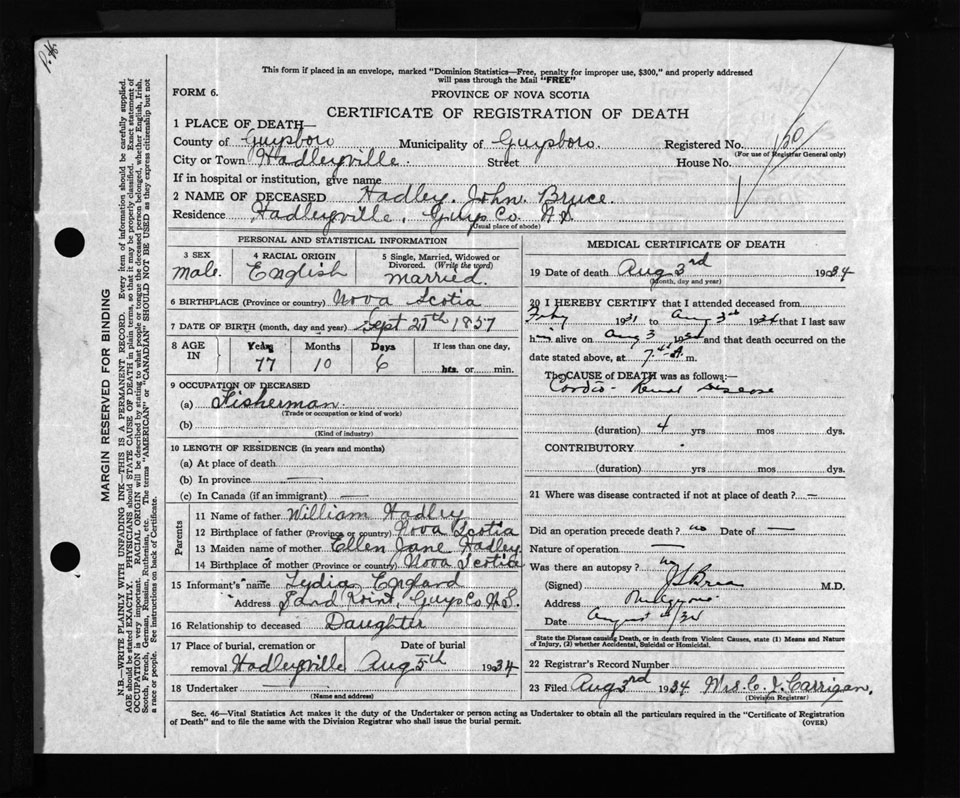 P.H.
This form if placed in an envelope, marked "Dominion Statistics—Free, penalty for improper use, $300," and properly addressed
will pass through the Mail "FREE"
FORM 6.
PROVINCE OF NOVA SCOTIA
CERTIFICATE OF REGISTRATION OF DEATH
1 PLACE OF DEATH—
County of Guysboro Municipality of Guysboro. Registered No.
(For use of Registrar General only)
City or Town Hadleyville. Street House No.
If in hospital or institution, give name
2 NAME OF DECEASED Hadley. John. Bruce.
Residence Hadleyville. Guys. Co. N.S.
(Usual place of abode)
PERSONAL AND STATISTICAL INFORMATION
3 SEX
male.
4 RACIAL ORIGIN
English
5 Single, Married, Widowed or
Divorced. (Write the word)
married.
6 BIRTHPLACE (Province or country) Nova Scotia
7 DATE OF BIRTH (month, day and year) Sept 27th 1857
8 AGE
IN
Years
77
Months
10
Days
6
If less than one day,
hrs. or min.
9 OCCUPATION OF DECEASED
(a) Fisherman.
(Trade or occupation or kind of work)
(b)
(Kind of industry)
10 LENGTH OF RESIDENCE (in years and months)
(a) At place of death
(b) In province —
(c) In Canada (if an immigrant) —
Parents
11 Name of father William Hadley
12 Birthplace of father (Province or country) Nova Scotia
13 Maiden name of mother Ellen Jane Hadley
14 Birthplace of mother (Province or country) Nova Scotia
15 Informant's name Lydia England
Address Sand Point, Guys Co. N.S.
16 Relationship to deceased Daughter
17 Place of burial, cremation or Date of burial
removal Hadleyville Aug 5th 1934
18 Undertaker —
(Name and address)
MEDICAL CERTIFICATE OF DEATH
19 Date of death Aug 3rd 1934
(Month, day and year)
20 I HEREBY CERTIFY that I attended deceased from
1931 to Aug 3rd 1934 that I last saw
him alive on Aug 3 1934 and that death occurred on the
date stated above, at 7 A. m.
The CAUSE of DEATH was as follows:
Cardio- Renal Disease
(duration) 4 yrs mos dys.
CONTRIBUTORY
(duration) yrs mos dys.
21 Where was disease contracted if not at place of death? —
Did an operation precede death? no Date of —
Nature of operation —
Was there an autopsy? no
(Signed) M.D.
Address
Date August
State the Disease causing Death, or in death from Violent Causes, state (1) Means and Nature
of Injury, (2) whether Accidental, Suicidal or Homicidal.
22 Registrar's Record Number
23 Filed Aug 3rd 1934 Mrs. C. J. Carrigan.
(Division Registrar)
Sec. 46—Vital Statistics Act makes it the duty of the Undertaker or person acting as Undertaker to obtain all the particulars required in the "Certificate of Registration
of Death" and to file the same with the Division Registrar who shall issue the burial permit.
(OVER)
MARGIN RESERVED FOR BINDING
N.B.—WRITE PLAINLY WITH UNFADING INK—THIS IS A PERMANENT RECORD. Every item of information should be carefully supplied.
AGE should be stated EXACTLY. PHYSICIANS should STATE CAUSE OF DEATH in plain terms, so that it may be properly classified. Exact statement of
OCCUPATION is very important. RACIAL ORIGIN will be described by stating to what people or tongue the deceased person belonged, whether English, Irish,
Scotch, French, German, Russian, Ruthenian, etc. The terms "AMERICAN" or "CANADIAN" SHOULD NOT BE USED as they express citizenship but not
a race or people. See instructions on back of Certificate.